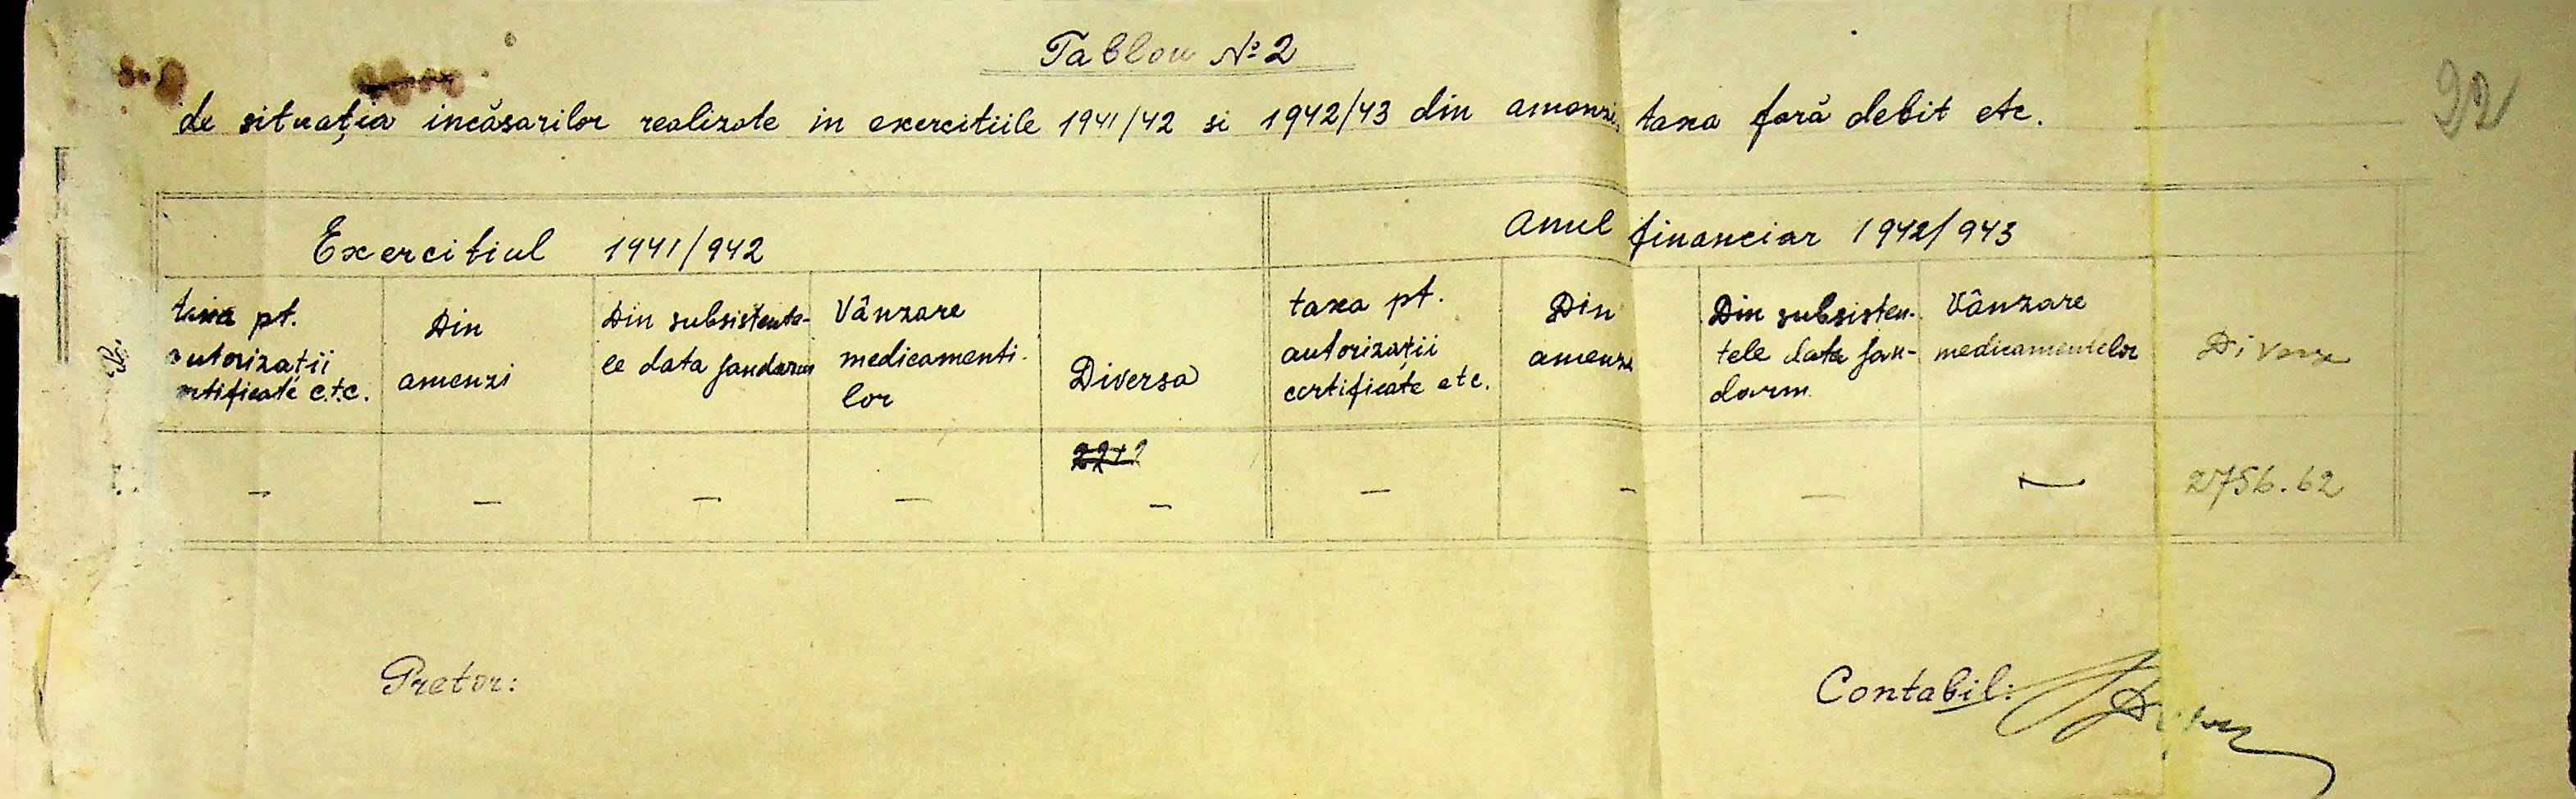 Tablou № 2
22
de situaţia incăsarilor realizate in exercitiile 1941/42 si 1942/43 din amenzi, taxa fără debit etc.
Exercitiul 1941/942
Anul financiar 1942/943
taxa pt.
autorizaţii
certificate e.t.c.
Din
amenzi
Din subsistente-
le data jandarm
Vânzare
medicamenti-
lor
Diversa
taxa pt.
autorizaţii
certificate etc.
Din
amenzi
Din subsisten-
tele data jan-
darm.
Vânzare
medicamentelor
Diverse
— — — — — — — — — 2756.62
Pretor:
Contabil: